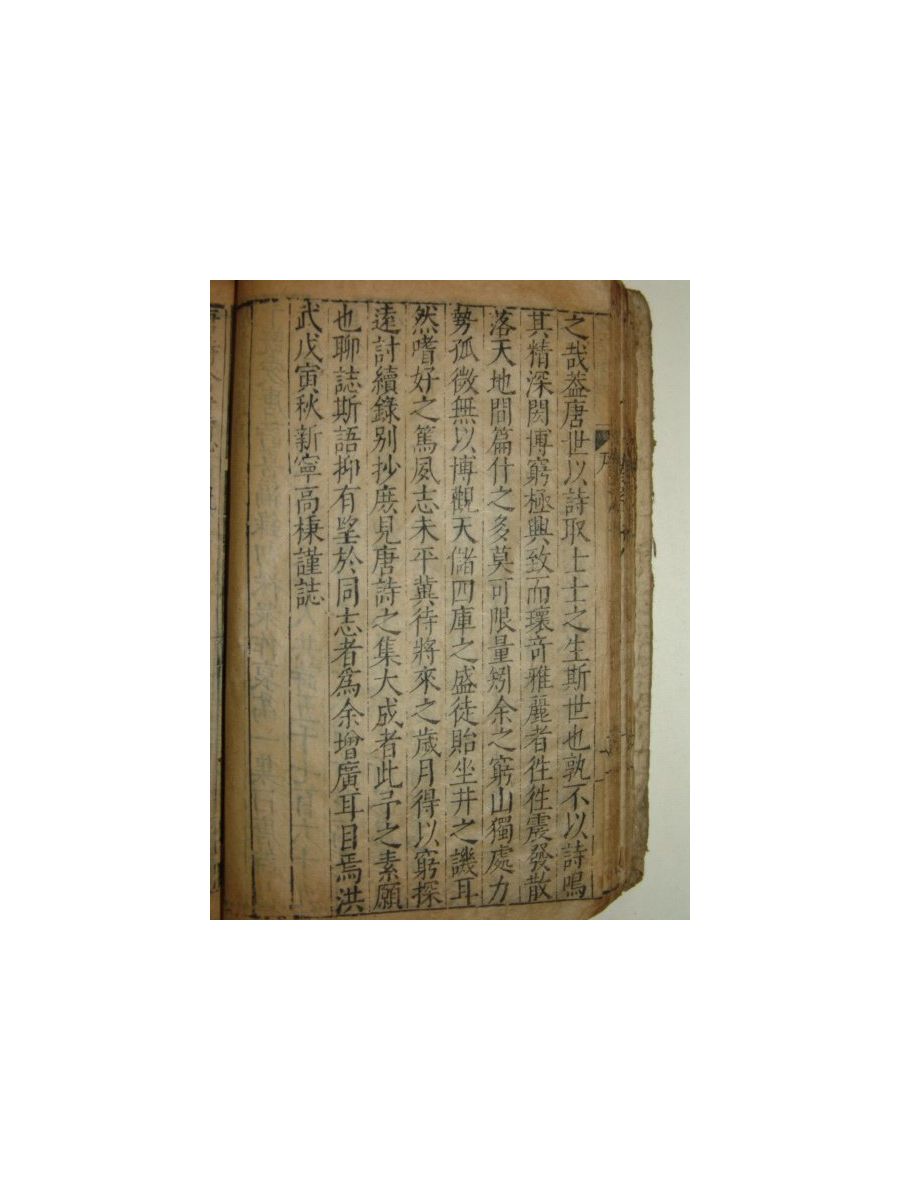 之哉葢唐世以詩取士士之生斯世也孰不以詩鳴
其精深閎博窮極興致而瓌竒雅麗者徃徃震發散
落天地間篇什之多莫可限量矧余之窮山獨處力
勢孤微無以博觀天儲四庫之盛徒貽坐井之譏耳
然嗜好之篤夙志未平冀待將來之歲月得以窮探
遠討續錄别抄庶見唐詩之集大成者此予之素願
也聊誌斯語抑有望於同志者為余增廣耳目焉洪
武戊寅秋新寧高棅謹誌